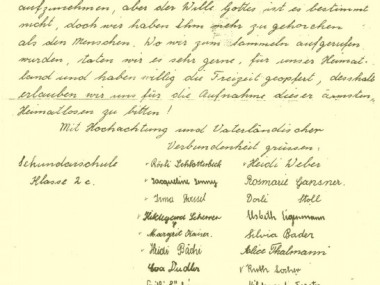 aufzunehmen, aber der Wille Gottes ist es bestimmt
nicht, doch wir haben Ihm mehr zu gehorchen
als den Menschen. Wo wir zum Sammeln aufgerufen
wurden, taten wir es sehr gerne, für unser Heimat-
land und haben willig die Freizeit geopfert, desshalb
erlauben wir uns für die Aufnahme dieser ärmsten
Heimatlosen zu bitten!
Mit Hochachtung und Vaterländischer
Verbundenheit grüssen:
Sekundarschule Rösli Schlatterbeck Heidi Weber
Klasse 2c. Jacqueline Rosmarie Gansner.
Irma Dorli Stoll
Hildegard Lisbeth
Margrit Kaiser. Silvia Bader
Heidi Bächi Alice Thalmann
Eva Ruth